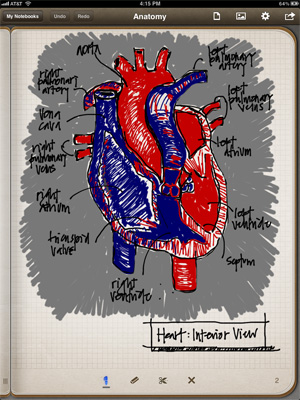 AT&T 4:15 PM 64%
My Notebooks Undo Redo Anatomy
aorta
left
pulmonary
artery
right
pulmonary
artery
left
pulmonary
veins
vena
cava
right
pulmonary
veins
left
atrium
right
atrium
left
ventricle
tricuspid
valve
septum
right
ventricle
Heart: Interior View
2